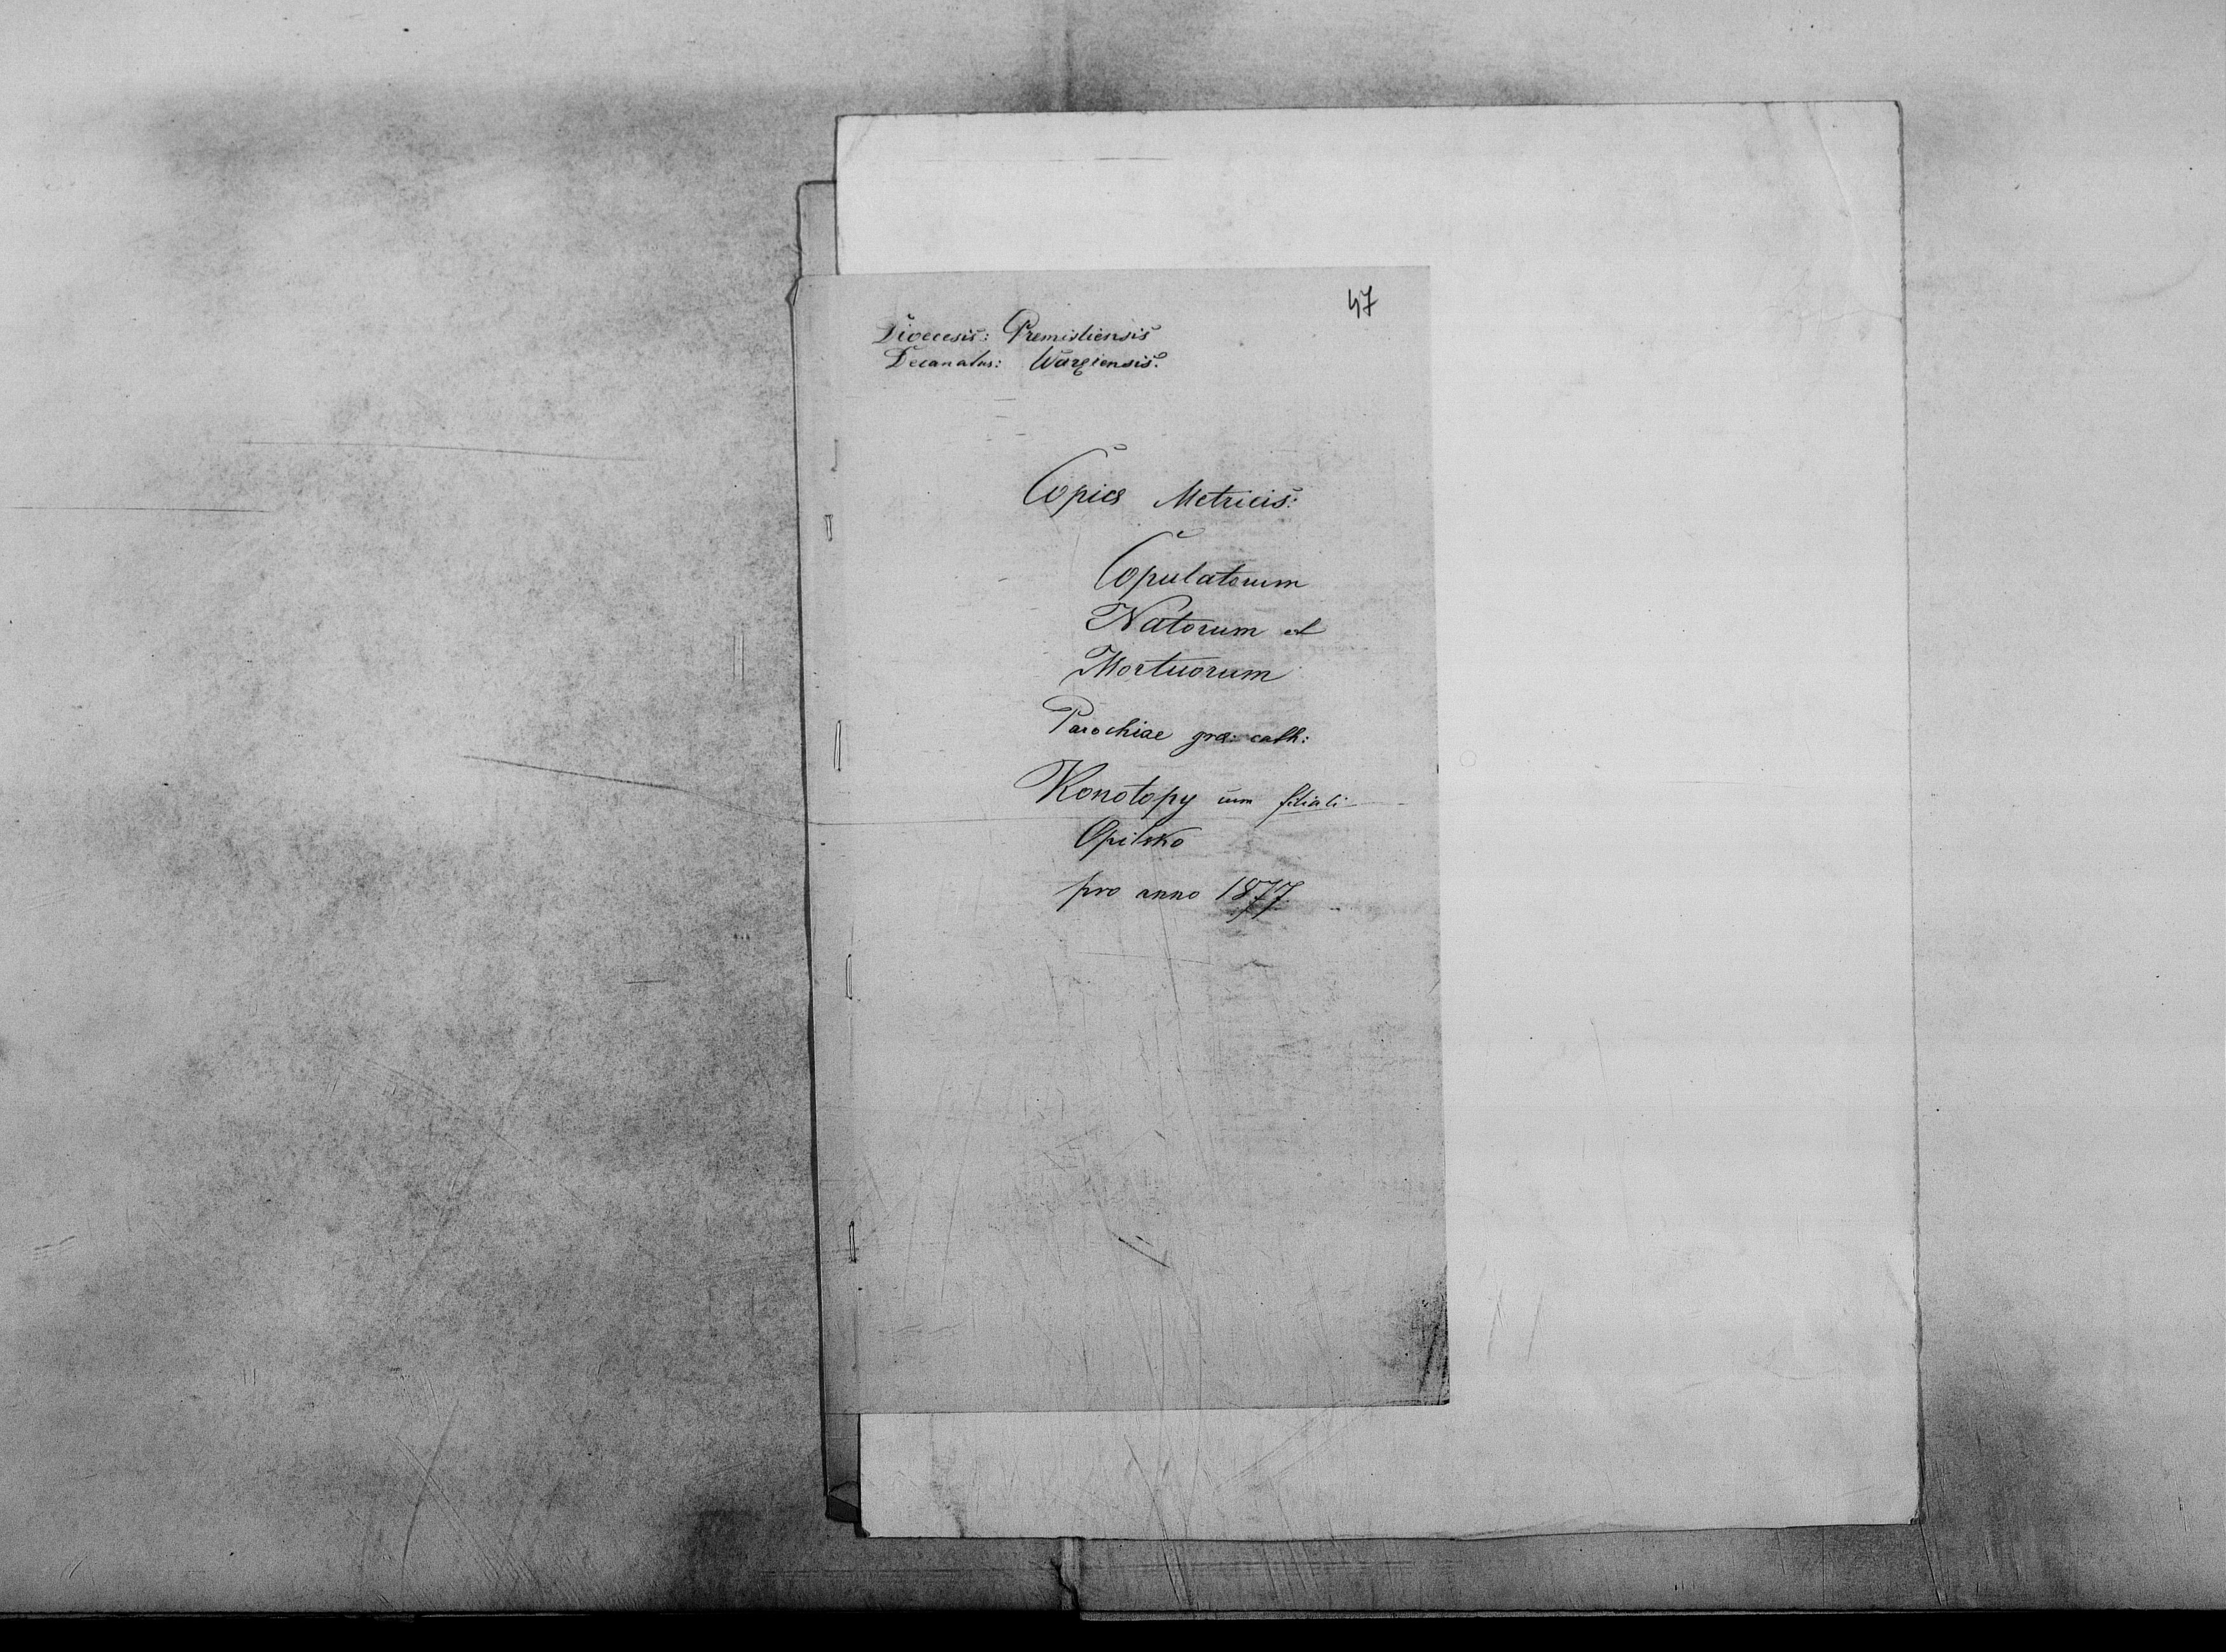 47
Dioecesis: Premisliensis
Decanatus: Waręiensis.
Copia Metricis:
Copulatorum
Natorum et
Mortuorum
Parochiae græ: cath:
Konotopy cum filiali
Opilsko
pro anno 1877.